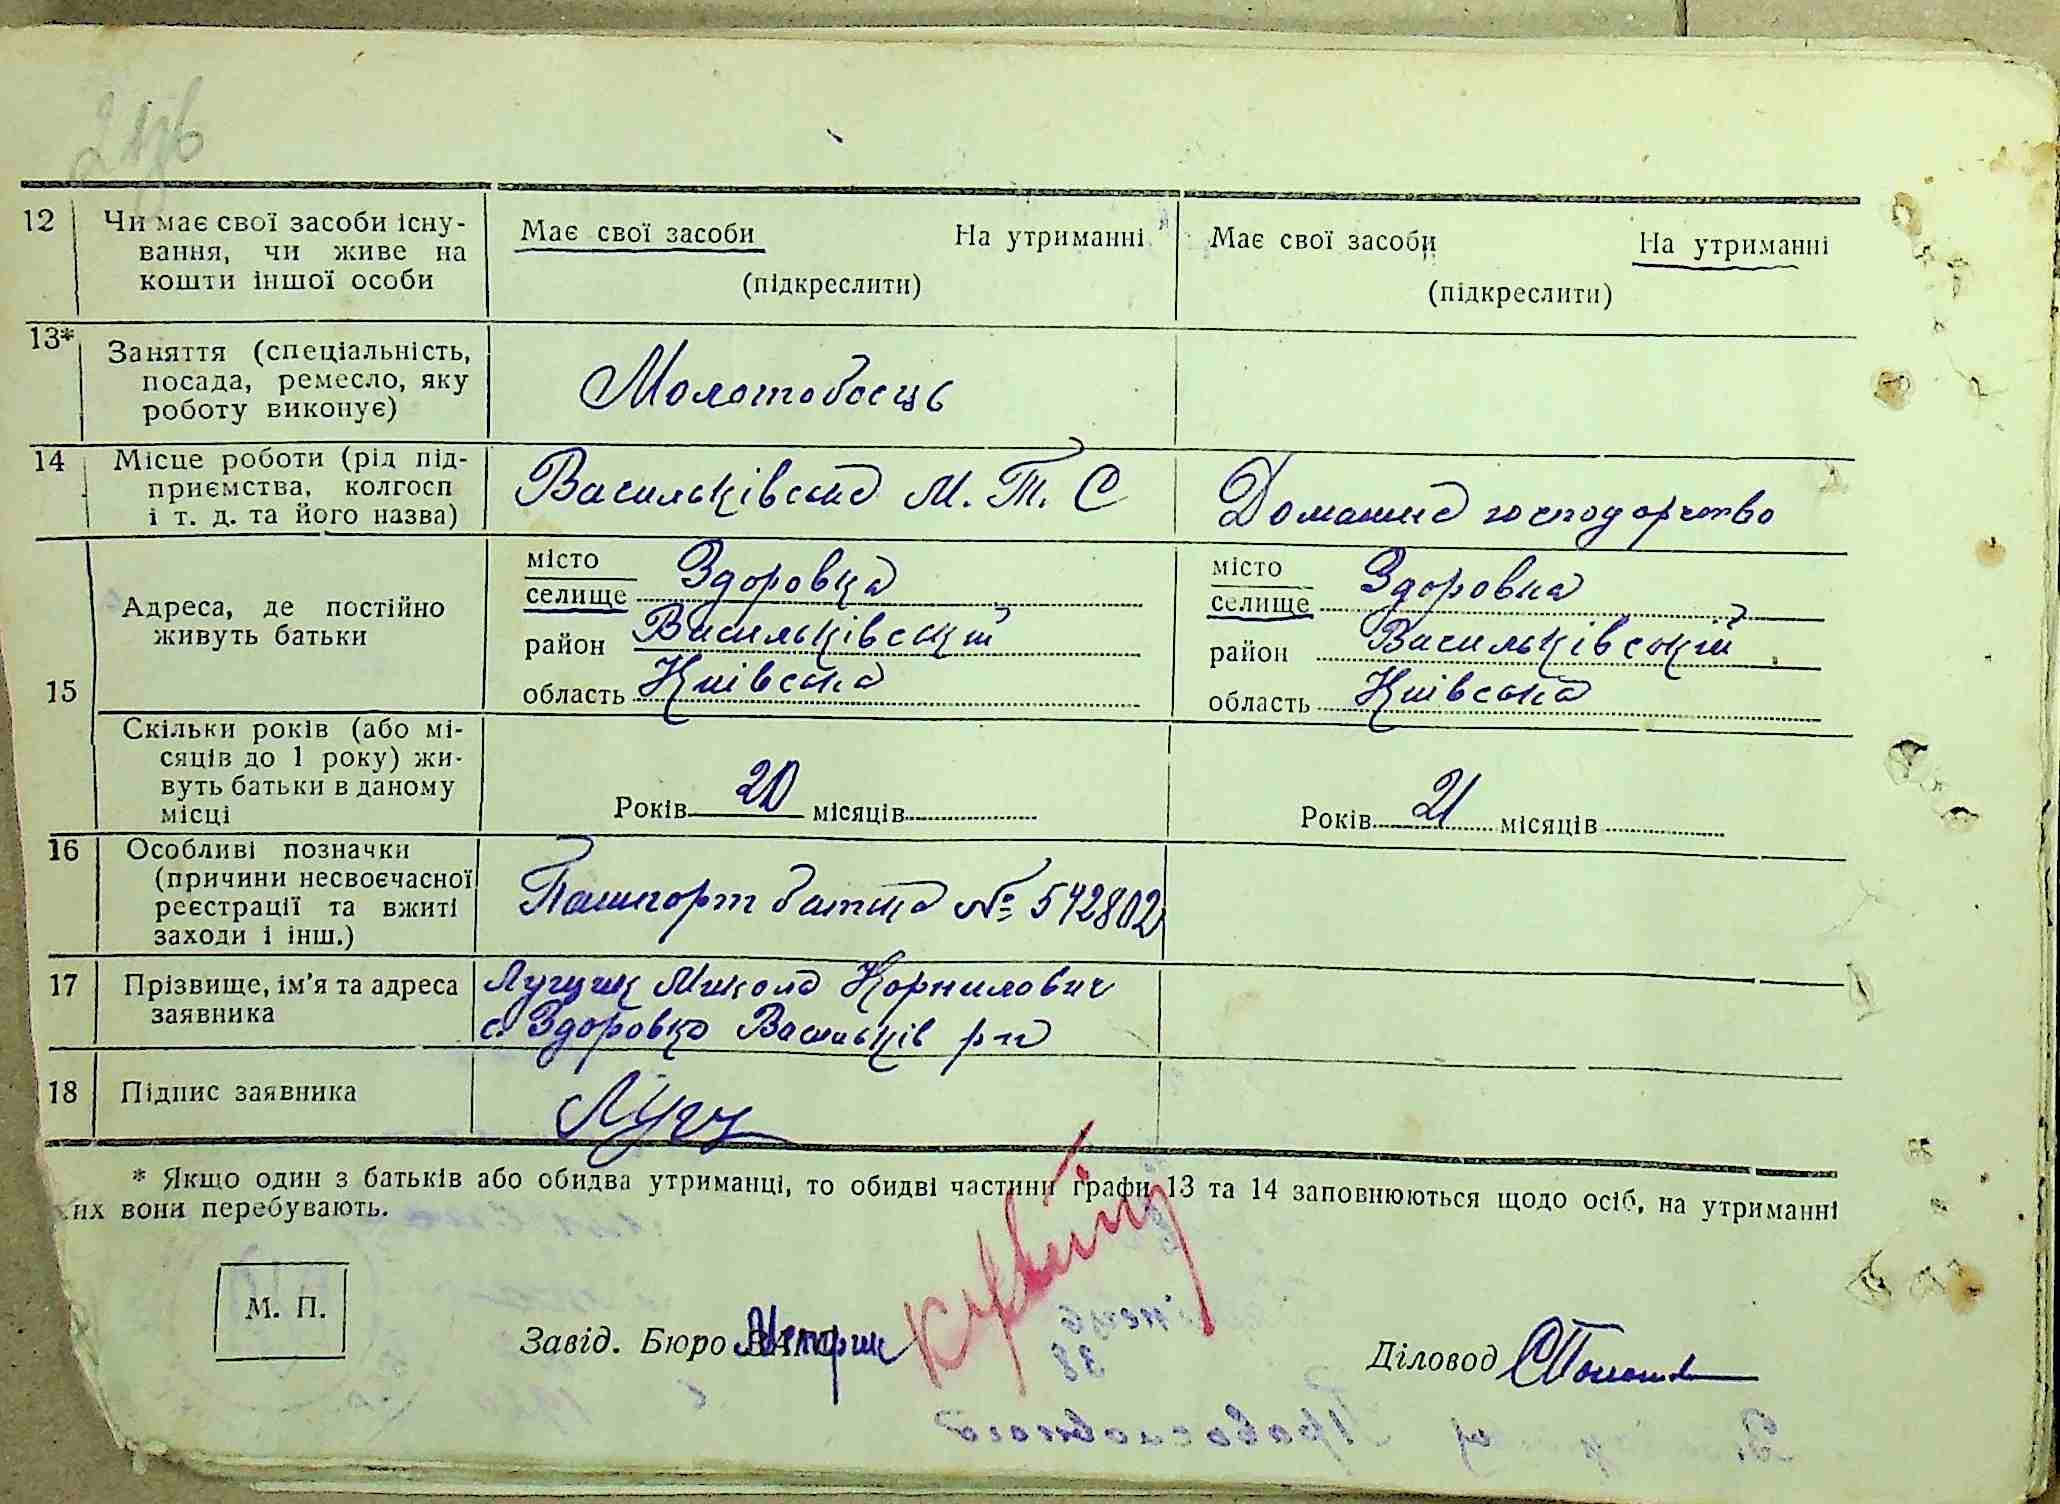 12 Чи має свої засоби існу-
вання, чи живе на
кошти іншої особи
Має свої засоби На утриманні
(підкреслити)
Має свої засоби На утриманні
(підкреслити)
13* Заняття (спеціальність,
посада, ремесло, яку
роботу виконує)
Молотобоєць
14 Місце роботи (рід під-
приємства, колгосп
і т. д. та його назва)
Васильківська М. Т. С
Домашнє господарство
15
Адреса, де постійно
живуть батьки
місто
селище Здоровка
район Васильківский
область Київська
місто
селище Здоровка
район Васильківский
область Київська
Скільки років (або мі-
сяців до 1 року) жи-
вуть батьки в даному
місці
Років 20 місяців
Років 21 місяців
16 Особливі позначки
(причини несвоєчасної
реєстрації та вжиті
заходи і інш.)
Пашпорт батька № 542802
17 Прізвище, ім'я та адреса
заявника
Микола Корнилович
с. Здоровка Васильків р-н
18 Підпис заявника
* Якщо один з батьків або обидва утриманці, то обидві частини графи 13 та 14 заповнюються щодо осіб, на утриманні
их вони перебувають.
М. П.
Завід. Бюро ЗАГС
Діловод